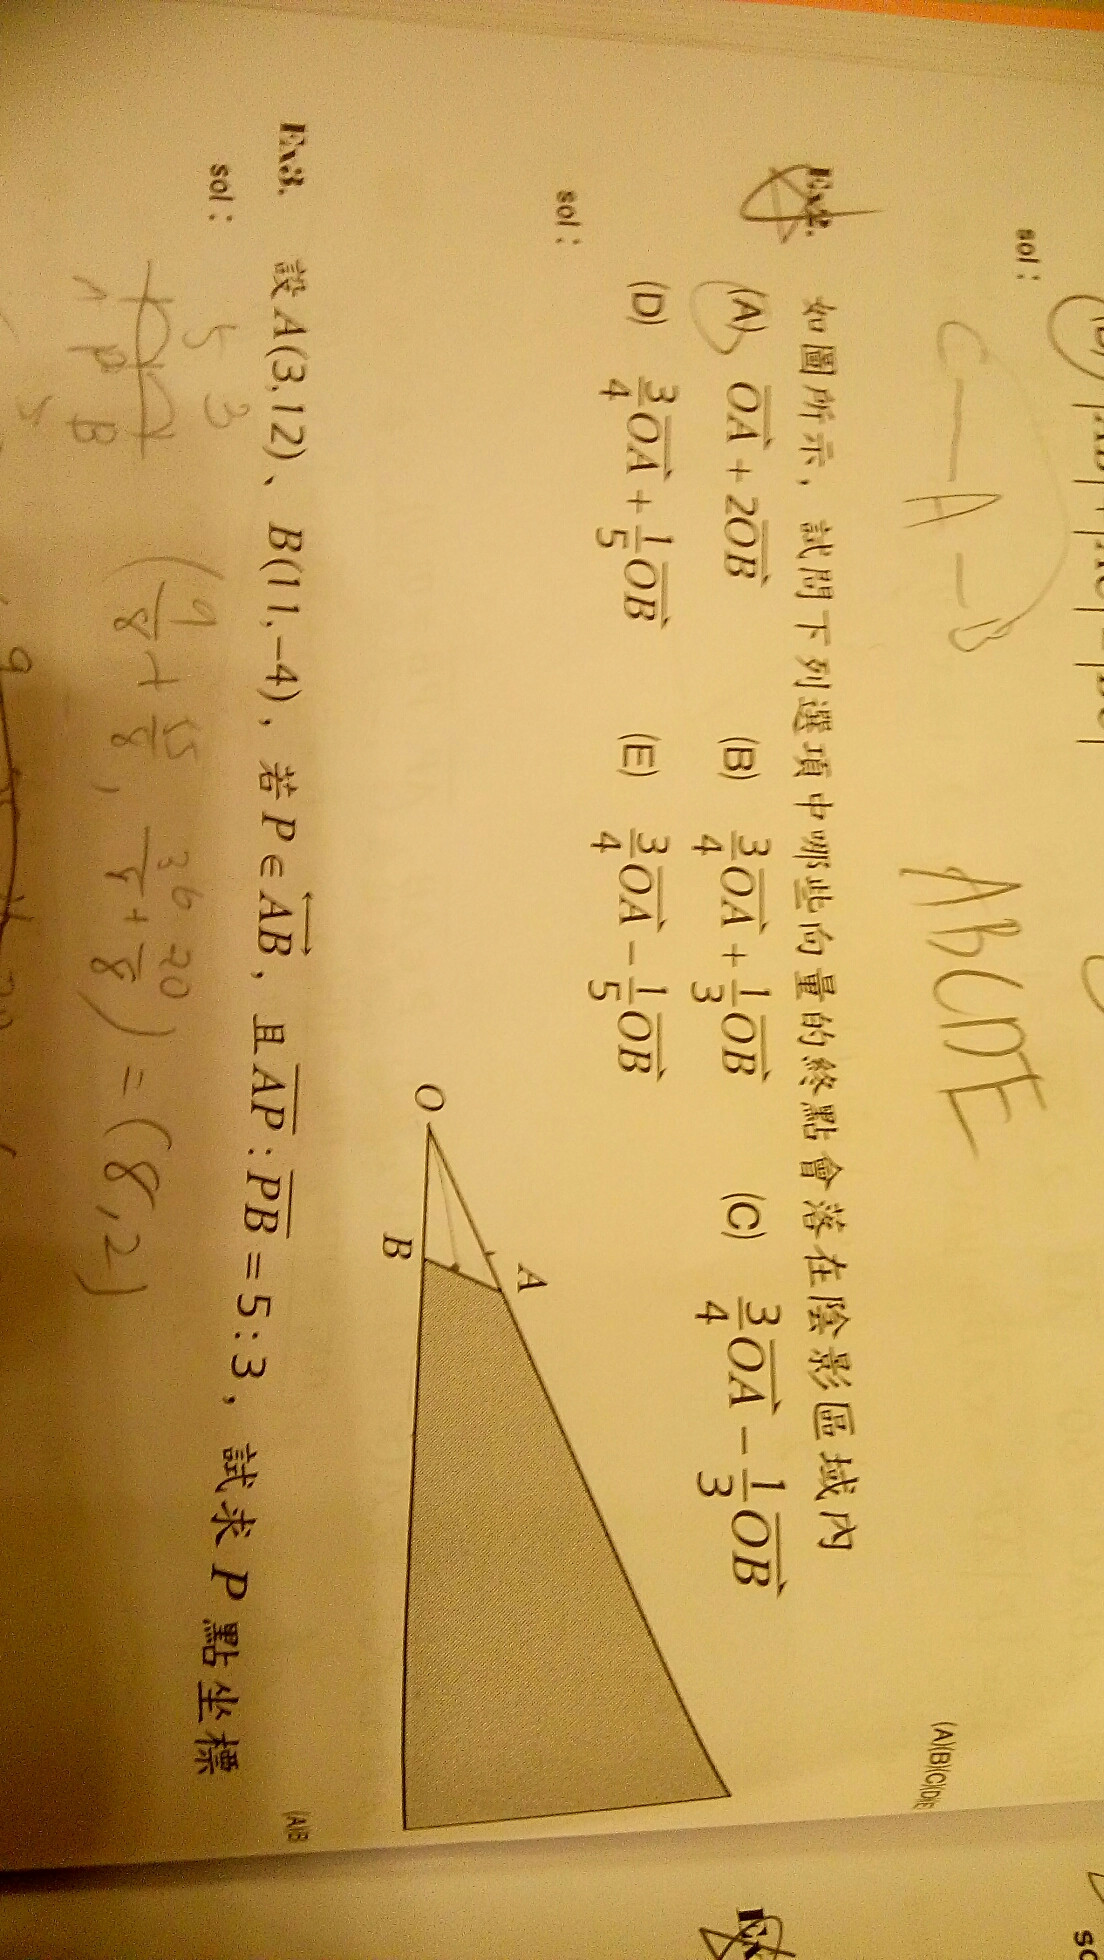 sol：
C — A — B
ABCDE
(A)(B)(C)(D)(E)
Ex2. 如圖所示，試問下列選項中哪些向量的終點會落在陰影區域內
(A) OA + 2OB (B) 3/4 OA + 1/3 OB (C) 3/4 OA − 1/3 OB
(D) 3/4 OA + 1/5 OB (E) 3/4 OA − 1/5 OB
sol：
O
A
B
(A)(B)
Ex3. 設 A(3,12)、B(11,−4)，若 P ∈ AB，且 AP : PB = 5 : 3，試求 P 點坐標
sol：
5 3
A P B
(9/8 + 55/8,
) = (8,2)